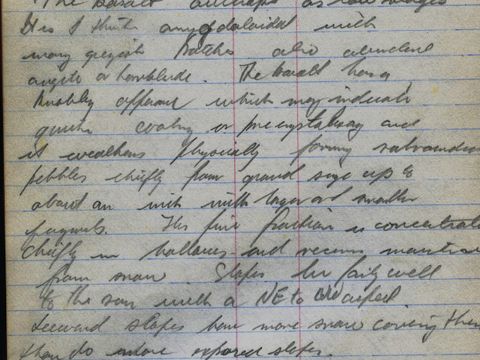 The basalt outcrops as low ridges
It is I think amygdaloidal with
many greyish patches also abundant
augite or hornblende. The basalt has a
knobbly appearance which may indicate
quicker cooling or precrystallizing and
it weathers physically forming subrounded
pebbles chiefly from gravel size up to
about an inch with larger and smaller
fragments. The fine fraction is concentrated
chiefly in hollows and receives moisture
from snow Slopes lie fairly well
to the sun with a NE to aspect
Leeward slopes have more snow covering them
than do more exposed slopes.